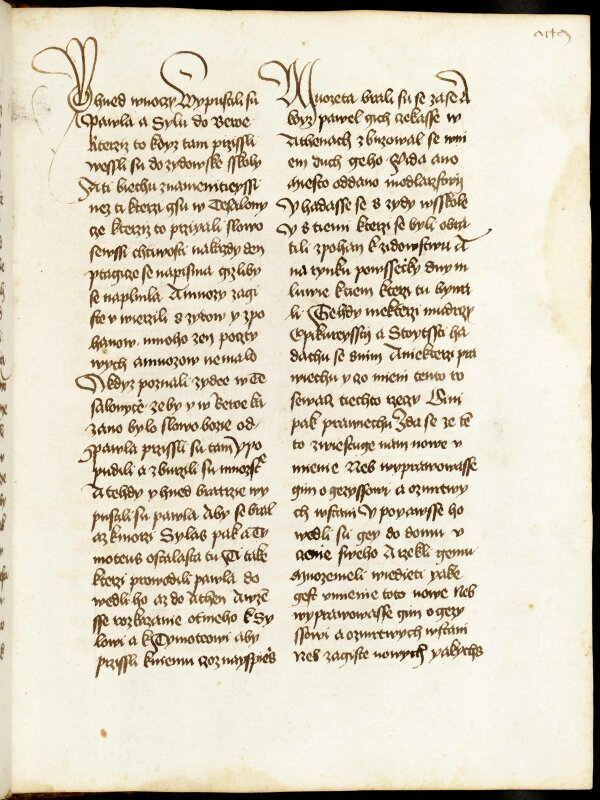 acta
Y hned wnoczy Wypustili su
Pawla a Sylu do Beroe
kterziz to kdyz tam przissli
wessli su do zydowske sskoly
A ti biechu znamenitieyssi
nez ti kterzi gsu w Tesalony
cze kterziz to przijali slowo
se wssi chtiwosti nakazdy den
ptagicze se napisma gizliby
se naplnila A mnozy zagi
ste vwierzili z zydow y z po
hanow mnoho zen poczty
wych a muozow nemalo
A kdyz poznali zydee w Te
salonyce ze by y w beroe ka
zano bylo slowo bozie od
pawla przissli su tam y po
pudili a zburzili su mnozstwie
A tehdy y hned bratrzie wy
pustili su pawla Aby se bral
az kmorzi Sylas pak a Ty
moteus ostalasta tu Ti take
kterzi prowodili pawla do
wedli ho az do Athen A wze
sse rozkazanie otneho k Sy
lowi a k Tymoteowi aby
przissli kniemu czoz nayspiess
Muozeta brali su se zase A
kdyz pawel gich czekasse w
Athenach zbuzowal se wni
em duch geho zada ano
miesto oddano modlarstwij
Y hadasse se s zydy wsskole
Y s tiemi kterzi se byli obra
tili zpohan k zidowstwu A
na rynku po wssecky dny m
luwie ktiem kterzi tu bywa
li Tehdy niekterzi mudrczy
Epikureyssczij a Stoytsstij ha
dachu se snim A niekterzi pra
wiechu y czo mieni tento ro
sewacz tiechto rzeczy Gini
pak prawiechu Zda se ze te
to zwiestuge nam nowe v
mienie Neb wyprawowasse
gim o gezyssowi a ozmrtwy
ch wstani Y popawsse ho
wedli su gey do domu v
czenie sweho A rzekli gemu
Muozemeli wiedieti yake
gest vmienie toto nowe Neb
wyprawowasse gim o gezy
ssowi a ozmrtwych wstani
Neb zagiste nowych yakychs